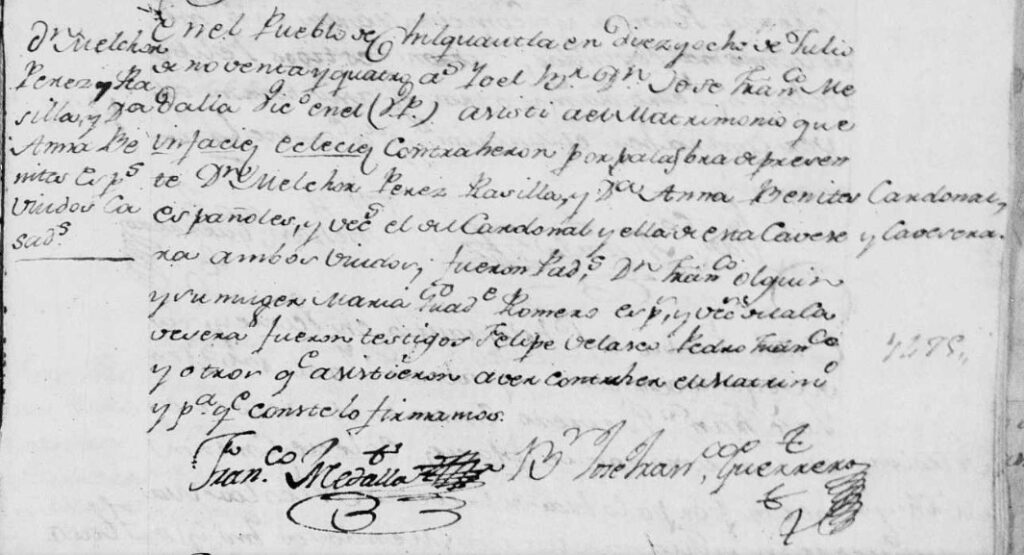 Dn. Melchor
Perez y Ra
silla, y Da
Anna Be
nites esps.
Viudos Ca
sads.
En el Pueblo de Chilquautla en diez y ocho de Julio
de noventa y quatro as. Yo el Br. Dn. Jose Franco. Me
dalla Vico. en el (D.P.) asisti a el Matrimonio que
in facien eclecien contraheron por palabra de presen
te Dn. Melchor Perez Rasilla, y Da. Anna Benites
españoles, y vecs. el del Cardonal y ella de esta Cavese
ra ambos viudos, fueron Pads. Dn. Franco. olguin
y su muger Maria Guade. Romero esp. y vecs. de la Ca
vesera fueron testigos Felipe Velasco Pedro Franco.
y otros qe. asistieron a ver contraher el Matrimo.
y pa. qe. conste lo firmamos.
Cardonal,
y Cavesera.
Franco. Medalla
Br. Jose Franco. Guerrero